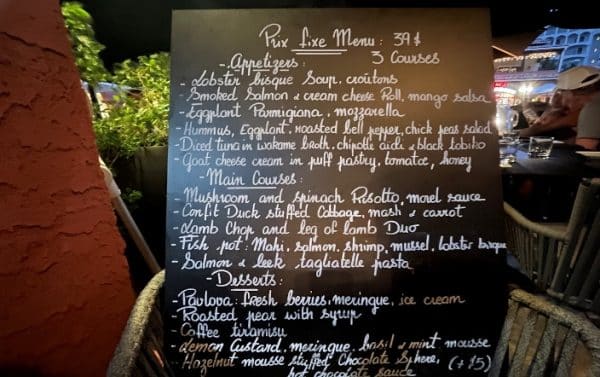 Prix fixe Menu : 39 $
- Appetizers : 3 Courses
- Lobster bisque Soup, croûtons
- Smoked Salmon & cream cheese Roll, mango salsa
- Eggplant Parmigiana, mozzarella
- Hummus, Eggplant, roasted bell pepper, chick peas salad
- Diced tuna in wakame broth, chipotle aioli & black tobiko
- Goat cheese cream in puff pastry, tomatoe, honey
- Main Courses :
- Mushroom and spinach Risotto, morel sauce
- Confit Duck stuffed Cabbage, mash & carrot
- Lamb Chop and leg of lamb Duo
- Fish pot : Mahi, salmon, shrimp, mussel, lobster bisque
- Salmon & leek tagliatelle pasta
- Desserts :
- Pavlova : fresh berries, meringue, ice cream
- Roasted pear with syrup
- Coffee tiramisu
- Lemon Custard, meringue, basil & mint mousse
- Hazelnut mousse stuffed Chocolate Sphere, (+ $5)
hot chocolate sauce